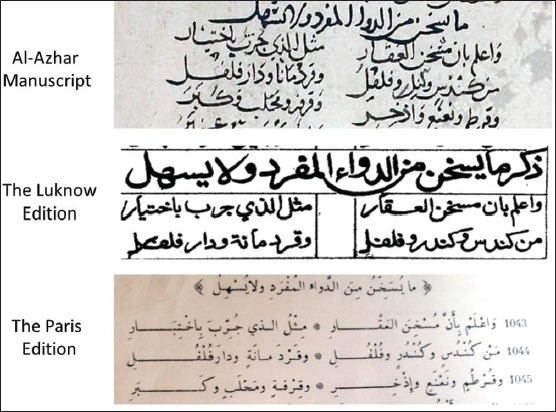 Al-Azhar
Manuscript
ما سخن من الدواء المفرد ولا يسهل
واعلم بان مسخن العقار مثل الذي جرب باختيار
من كندس وكندر وفلفل وقردمانا ودار فلفل
وقرطم ونعنع واذخر وقرفة ومحلب وكبر
The Luknow
Edition
ذكر ما يسخن من الدواء المفرد ولا يسهل
واعلم بان مسخن العقار مثل الذي جرب باختيار
من كندس وكندر وفلفل وقرد مانة ودار فلفل
The Paris
Edition
﴿ ما يُسَخِّنُ مِنَ الدَّواءِ المُفْرَدِ ولا يُسْهِلُ ﴾
1043 وَاعْلَمْ بِأَنَّ مُسْخِنَ العَقَّـارِ * مِثْلُ الذي جُرِّبَ بِاخْتِبَـارِ
1044 مَنْ كُنْدُسٍ وكُنْدُرٍ وفُلْفُلِ * وقَرْدَ مانَةٍ ودارِفُلْفُـلِ
1045 وقُرْطُمٍ ونَعْنَعٍ وإذْخِـرِ * وقِرْفَةٍ ومَحْلَبٍ وكَبَـرِ